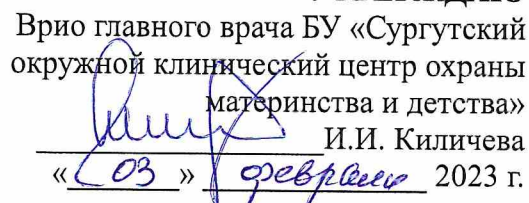 Врио главного врача БУ «Сургутский
окружной клинический центр охраны
материнства и детства»
И.И. Киличева
«03» февраля 2023 г.